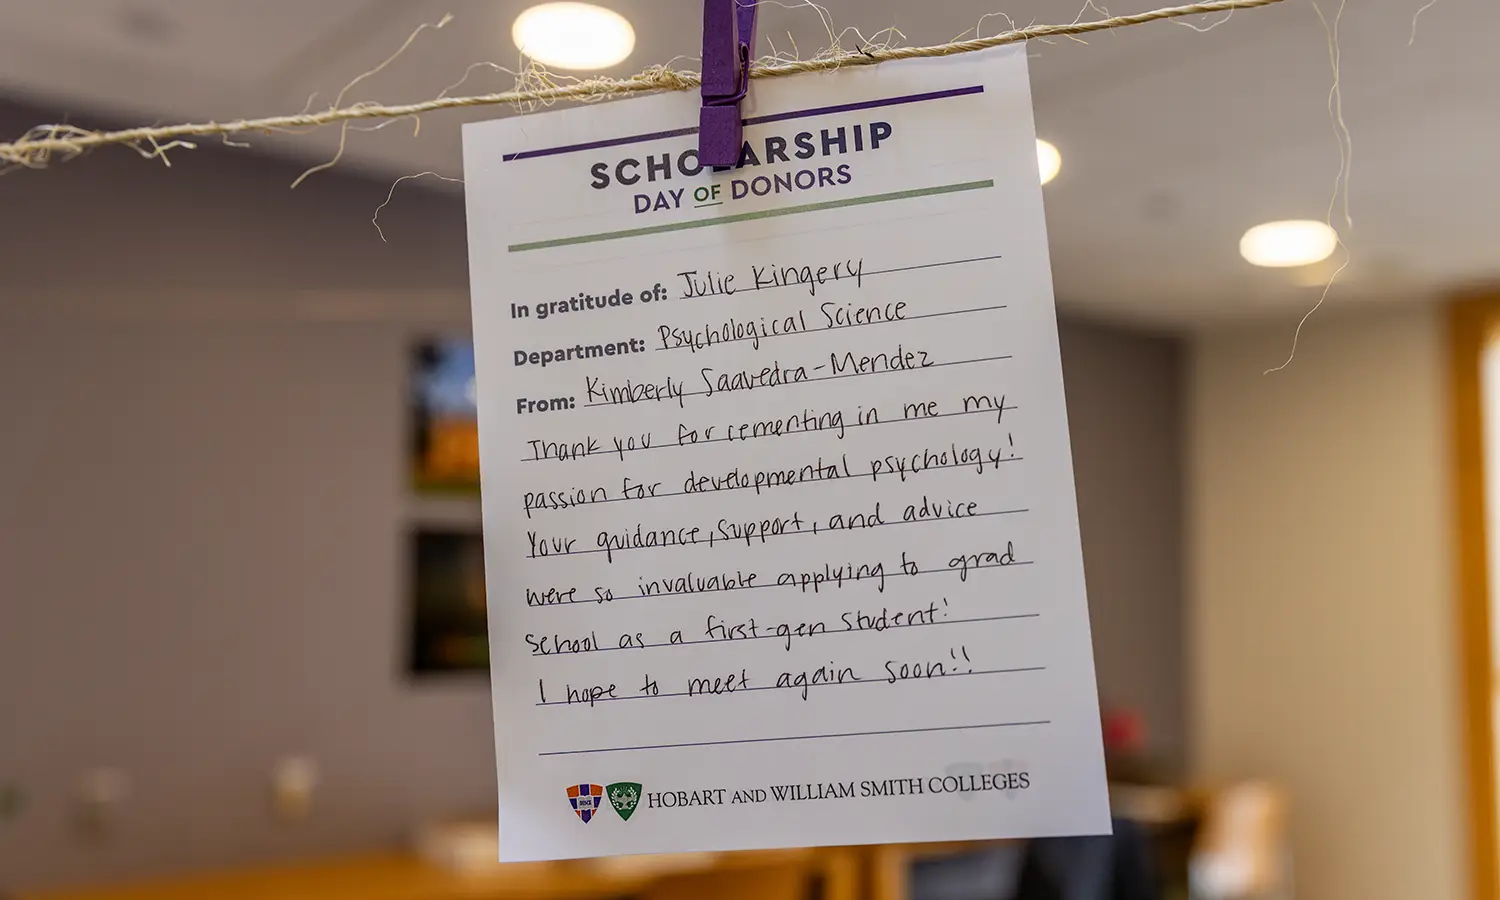 SCHOLARSHIP
DAY OF DONORS
In gratitude of: Julie Kingery
Department: Psychological Science
From: Kimberly Saavedra-Mendez
Thank you for cementing in me my
passion for developmental psychology!
Your guidance, support, and advice
were so invaluable applying to grad
school as a first-gen student!
I hope to meet again soon!!
HOBART AND WILLIAM SMITH COLLEGES